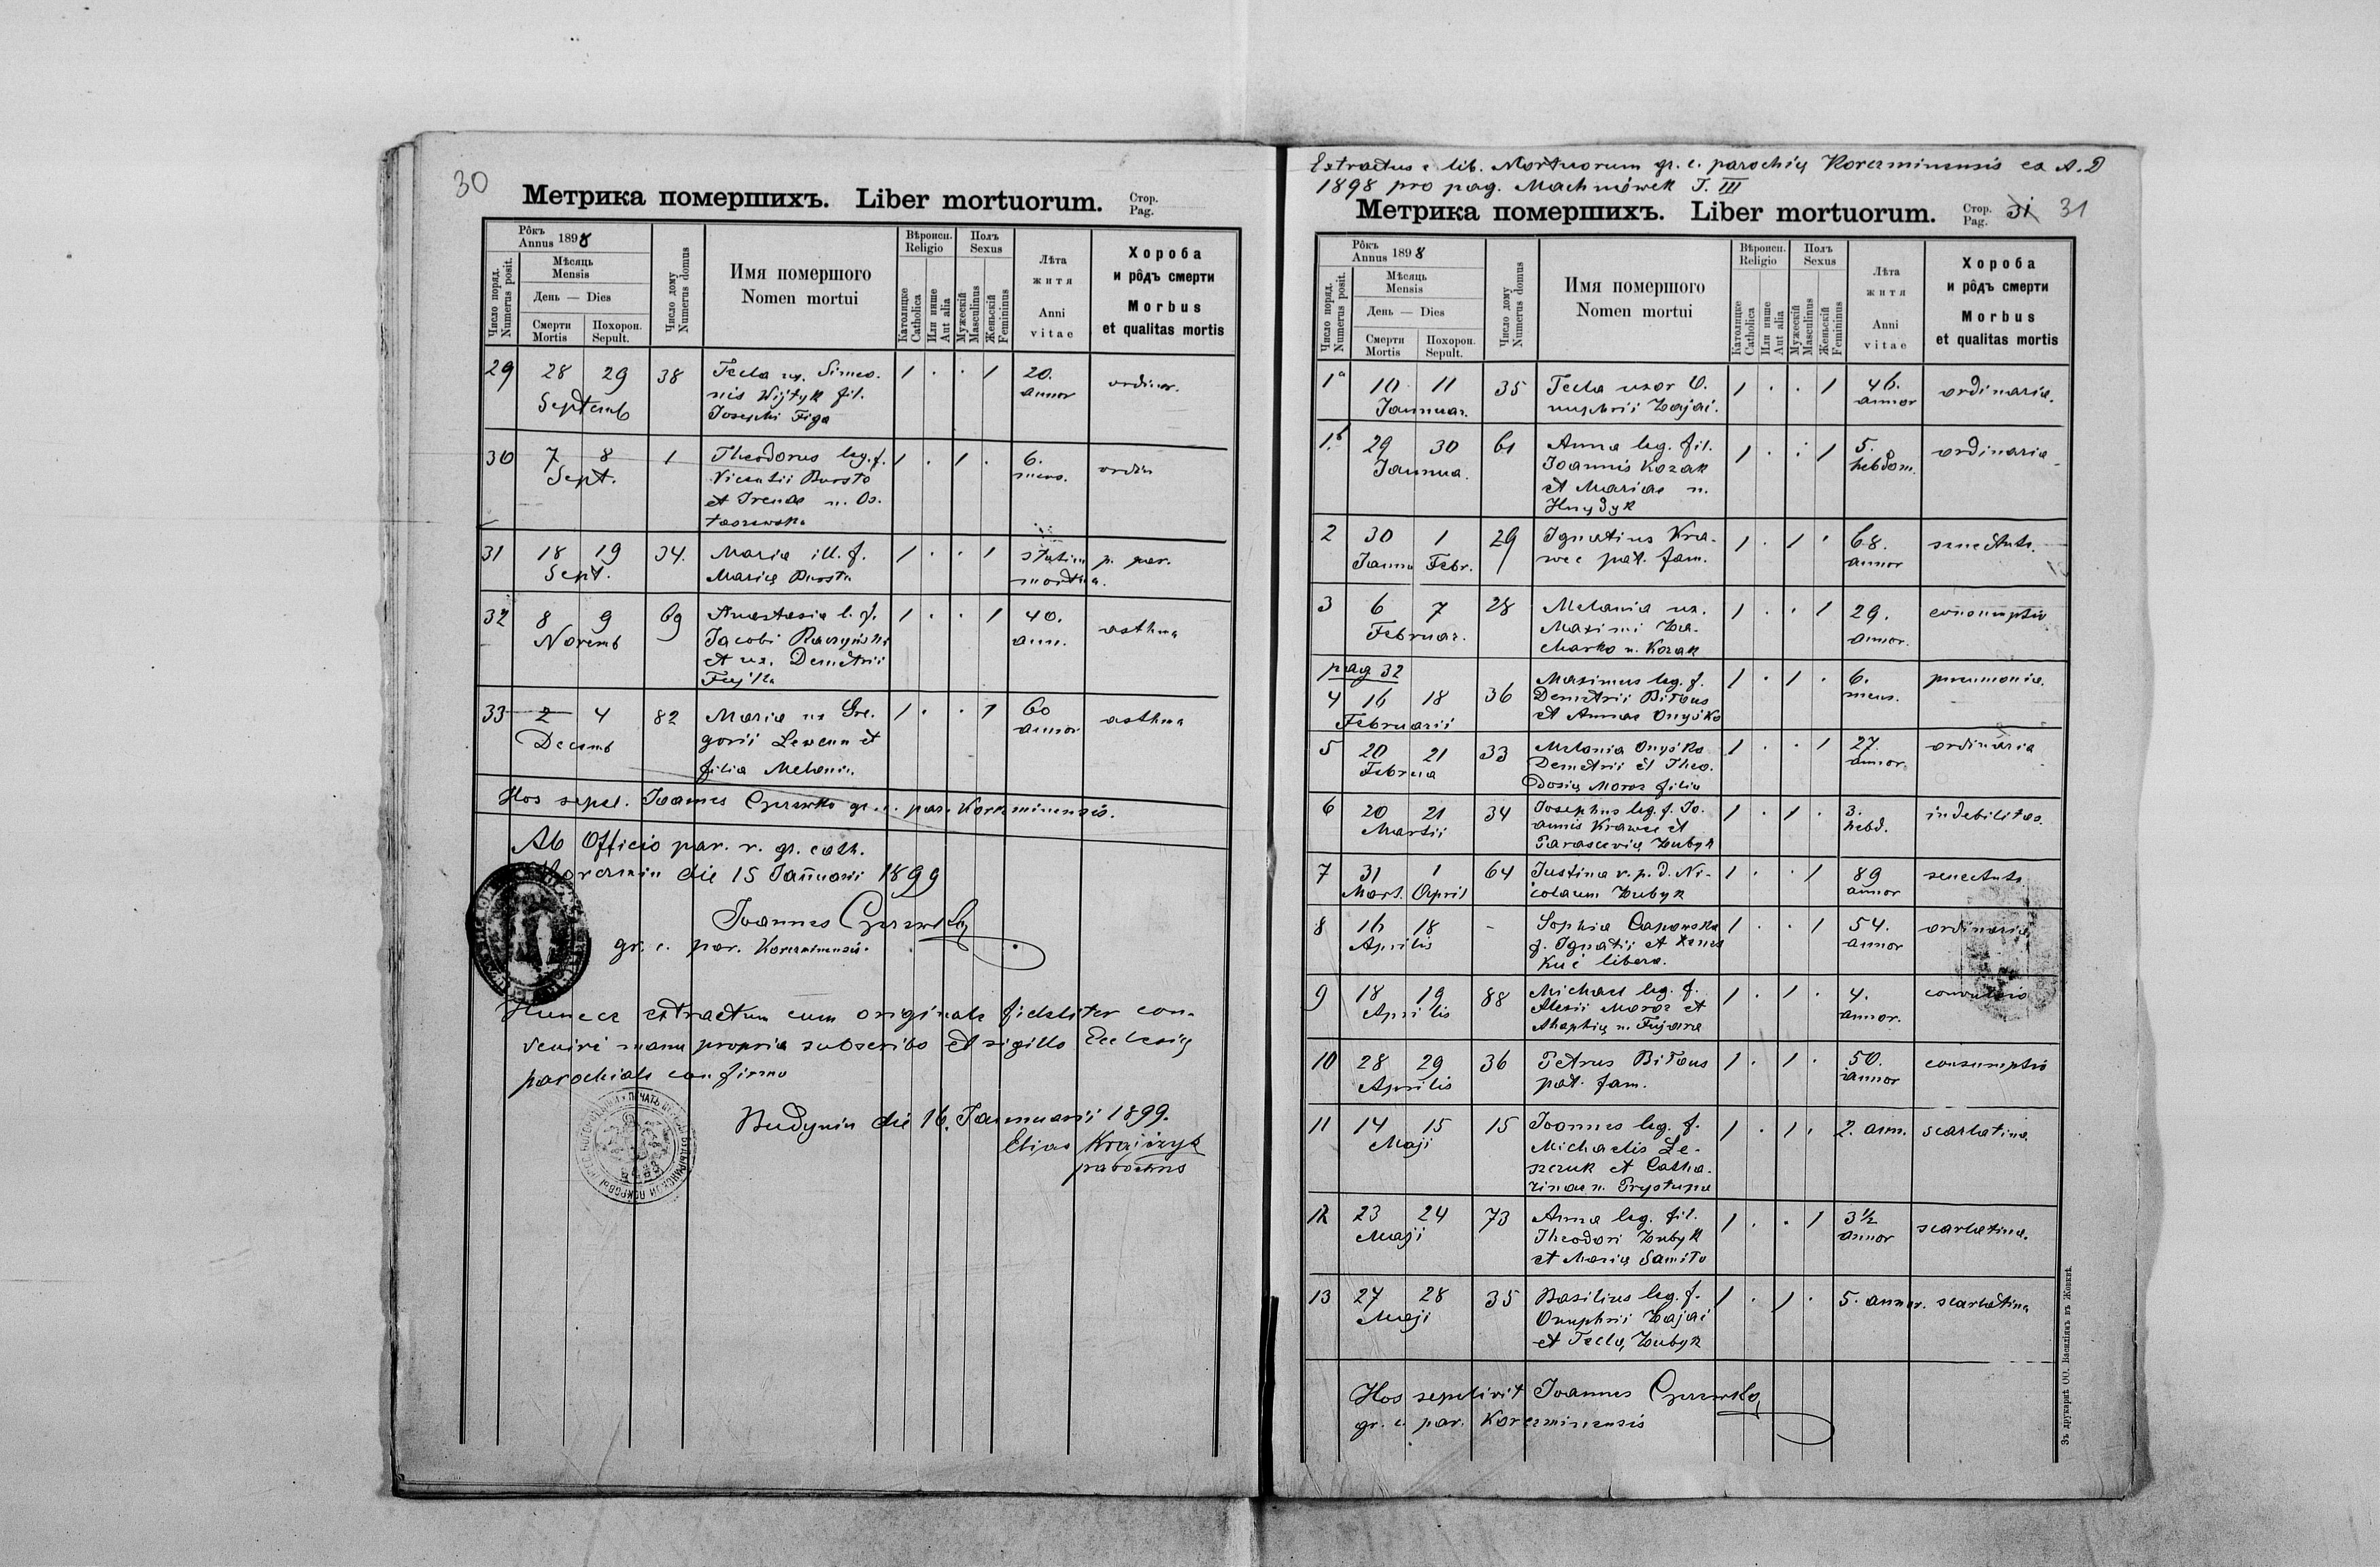 30
Метрика помершихъ. Liber mortuorum. Стор. Pag.
Число поряд. Numerus posit.
Рôкъ Annus 1898
Мѣсяць Mensis
День — Dies
Смерти Mortis
Похорон. Sepult.
Число дому Numerus domus
Имя помершого Nomen mortui
Вѣроисп. Religio
Католицке Catholica
Или инше Aut alia
Полъ Sexus
Мужескій Masculinus
Женьскій Femininus
Лѣта житя Anni vitae
Хороба и рôдъ смерти Morbus et qualitas mortis
29 28 29 38 Tecla ux. Simeo- 1 . . 1 20. ordinar.
Septemb nis Wijtyk fil. annor
Josephi Figa
30 7 8 1 Theodorus leg. f. 1 . 1 . 6. ordin
Sept. Bursto mens.
et Irenae n. Os-
31 18 19 34. Maria ill. f. 1 . . 1 statim p. par.
Sept. Marię Bursta mortua.
32 8 9 69 Anastasia l. f. 1 . . 1 40. asthma
Novemb Jacobi ann.
et ux. Demetrii
33 2 4 82 Maria ux Gre- 1 . . 1 60 asthma
Decemb gorii et annor
filia Melanii
Hos sepel. Joannes gr. c. par. Korczminensis.
Ab Officio par. r. gr. cath.
Korczmin die 15 Januarii 1899
Joannes
gr. c. par. Korczminensis.
Huncce extractum cum originale fideliter con-
venire manu propria subscribo et sigillo Ecclesię
parochiale confirmo
Budynin die 16. Januarii 1899.
Elias Krajczyk
parochus
Extractus e lib. Mortuorum gr. c. parochię Korczminensis ex A. D
1898 pro pag. Machnówek T. III
Метрика помершихъ. Liber mortuorum. Стор. Pag. 31 31
Число поряд. Numerus posit.
Рôкъ Annus 1898
Мѣсяць Mensis
День — Dies
Смерти Mortis
Похорон. Sepult.
Число дому Numerus domus
Имя помершого Nomen mortui
Вѣроисп. Religio
Католицке Catholica
Или инше Aut alia
Полъ Sexus
Мужескій Masculinus
Женьскій Femininus
Лѣта житя Anni vitae
Хороба и рôдъ смерти Morbus et qualitas mortis
1a 10 11 35 Tecla uxor O- 1 . . 1 46. ordinaria.
Januar. nuphrii Zajać. annor
1.b 29 30 61 Anna leg. fil. 1 . . 1 5. ordinaria
Janua. Joannis Kozak hebdom.
et Mariae n.
Hnydyk
2 30 1 29 Ignatius Kra- 1 . 1 . 68. senectute.
Janu Febr. wec pat. fam. annor
3 6 7 28 Melania ux. 1 . . 1 29. consumptio
Februar. Maximi Za- annor.
charko n. Kozak
pag 32
4 16 18 36 Maximus leg. f. 1 . 1 . 6. pneumonia.
Februarii Demetrii Biłous mens.
et Annae Onyśko
5 20 21 33 Melania Onyśko 1 . . 1 27. ordinaria
Februa Demetrii et Theo- annor.
dosię Moroz filia
6 20 21 34 Josephus leg. f. Jo- 1 . 1 . 3. indebilitas.
Martii annis Krawec et hebd.
Parascevię Zubyk
7 31 1 64 Justina v. p. d. Ni- 1 . . 1 89 senectute
Mart. April colaum Zubyk annor
8 16 18 - Sophia 1 . . 1 54. ordinaria
Aprilis f. Ignatii et annor
Kuć libera.
9 18 19 88 Michael leg. f. 1 . 1 . 4. convulsio
Aprilis Alexii Moroz et annor.
Ahaphię n. Fujara
10 28 29 36 Petrus Biłous 1 . 1 . 50. consumptio
Aprilis pat. fam. annor
11 14 15 15 Joannes leg. f. 1 . 1 . 2. ann. scarlatina.
Maji Michaelis Le-
szczuk et Catha-
rinae n. Prystupa
12 23 24 73 Anna leg. fil. 1 . . 1 3½ scarlatina.
Maji Theodori Zubyk annor
et Marię Samiło
13 27 28 35 Basilius leg. f. 1 . 1 . 5. annor. scarlatina
Maji Onuphrii Zajać
et Teclę Zubyk
Hos sepelivit Joannes
gr. c. par. Korczminensis
Зъ друкарнѣ ОО. Василіянъ въ Жовквѣ.